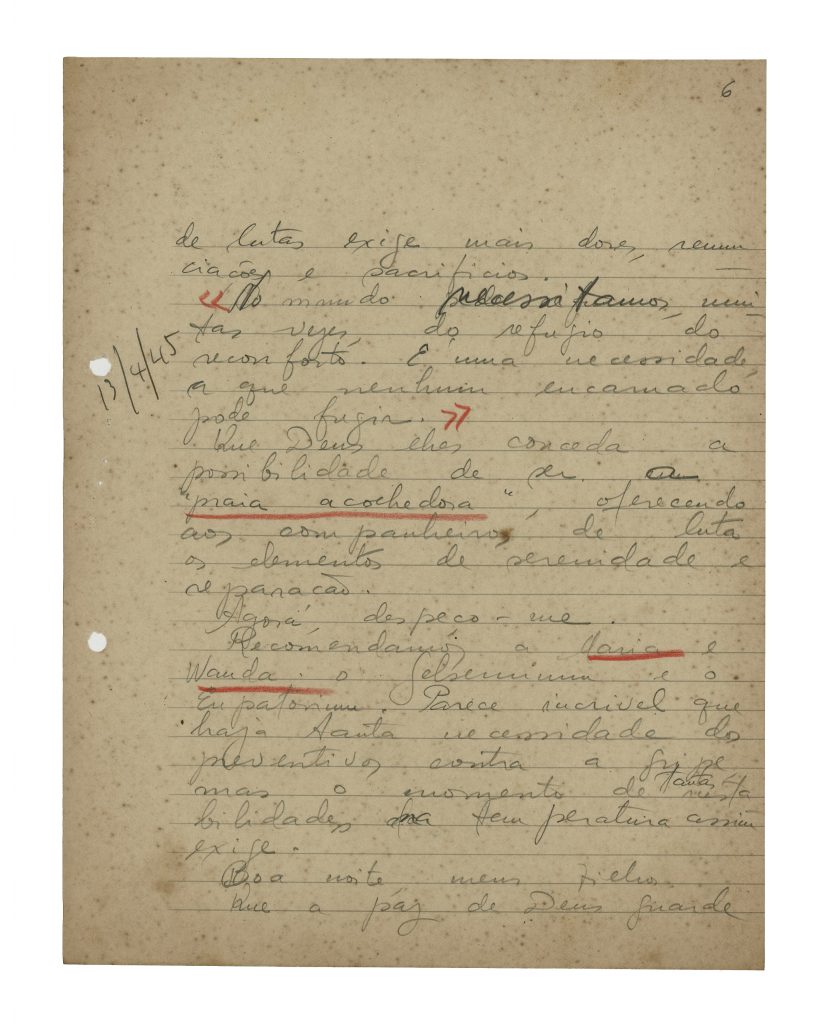 6
de lutas exige mais dores, renun
ciações e sacrificios.
«No mundo necessitamos, mui
tas vezes, do refugio do
reconforto. É uma necessidade,
13/4/45
a que nenhum encarnado
pode fugir.»
Que Deus lhes conceda a
possibilidade de ser
"praia acolhedora", oferecendo
aos companheiros de luta
os elementos de serenidade e
reparação.
Agora despeço-me.
Recomendamos a Maria e
Wanda o Gelseminum e o
Eupatorium. Parece incrivel que
haja tanta necessidade dos
preventivos contra a gripe
mas o momento de tantas insta
bilidades na temperatura assim
exige.
Boa noite, meus filhos.
Que a paz de Deus guarde